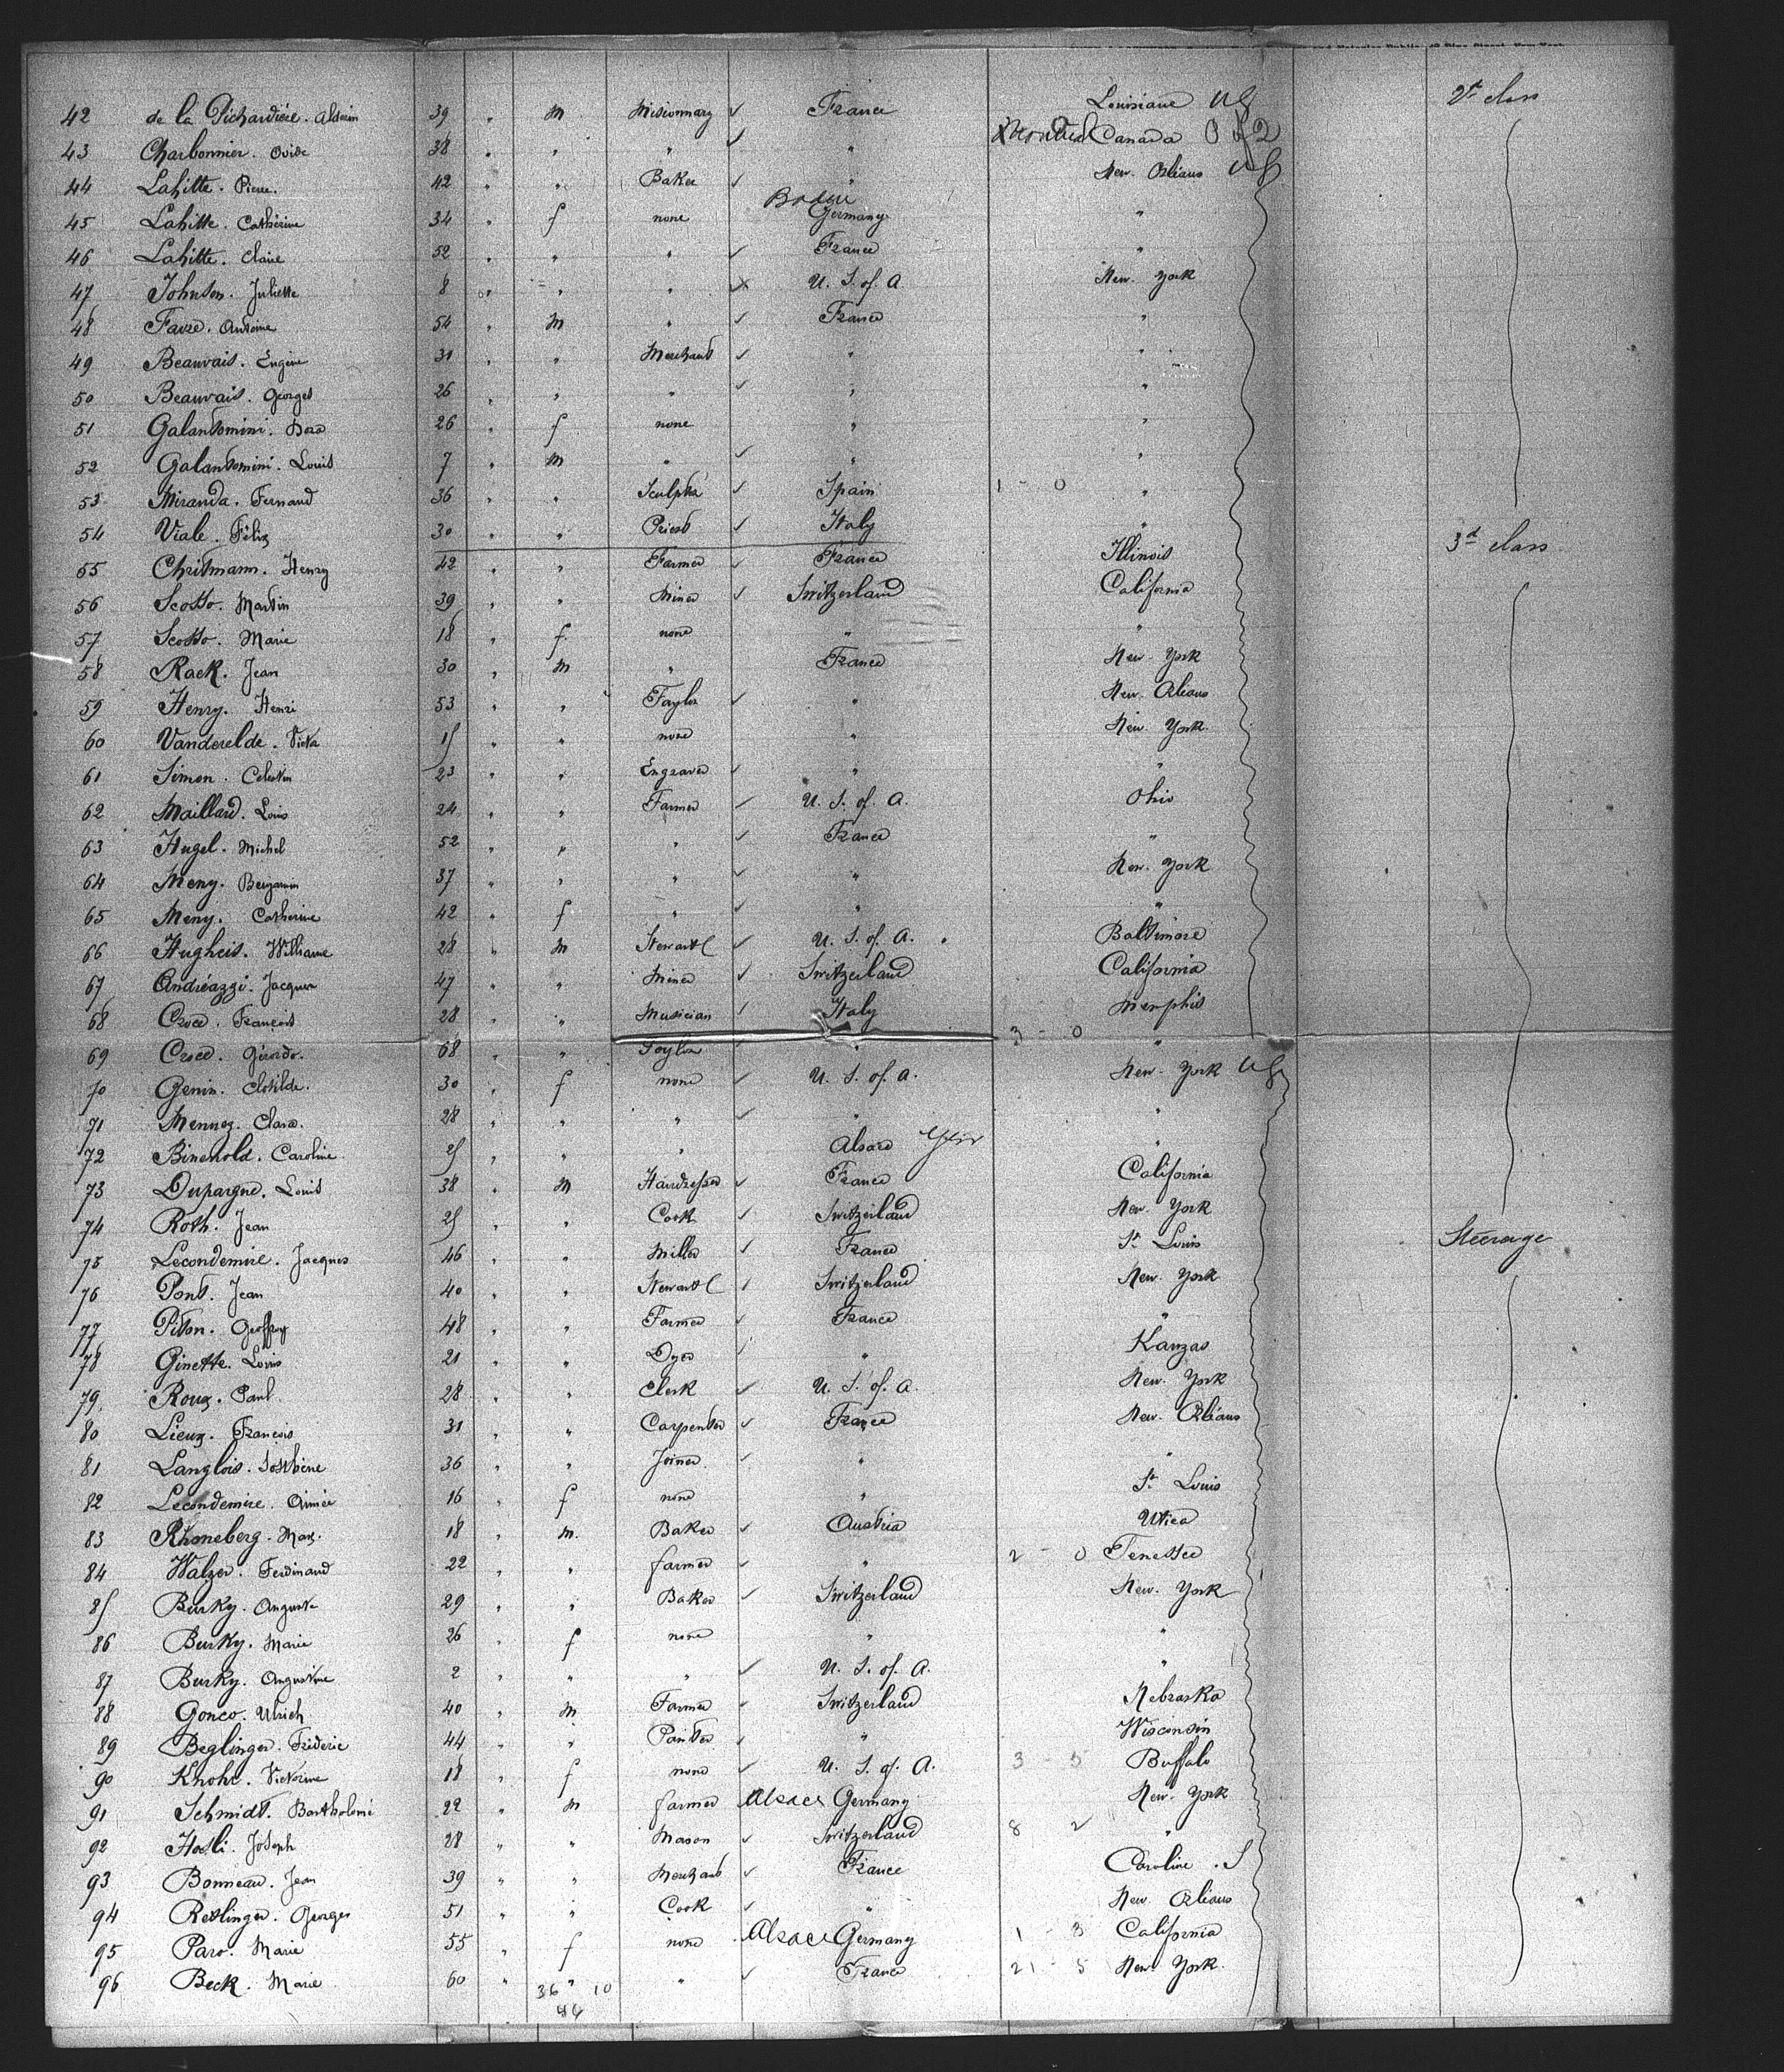 2d class
42 de la Pichardière. Alderin 39 " m Missionnary ✓ France Louisiane US
43 Charbonnier. Ovide 38 " " " ✓ " Montreal Canada
44 Lahitte. Pierre. 42 " " Baker ✓ " New. Orléans US
45 Lahitte. Cathérine 34 " f none Baden Germany "
46 Lahitte. Claire 52 " " " ✓ France "
47 Johnson. Juliette 8 " " " x U. S. of. A New. York
48 Favre. Antoine 54 " m " ✓ France "
49 Beauvais. Eugène 31 " " Merchant ✓ " "
50 Beauvais. Georges 26 " " " ✓ " "
51 Galantomini. Dora 26 " f none " "
52 Galantomini. Louis 7 " m " ✓ " "
53 Miranda. Fernand 36 " " Sculpter ✓ Spain 1 - 0 "
54 Viale. Félix 30 " " Priest ✓ Italy "
3d class
55 Chritmann. Henry 42 " " Farmer ✓ France Illinois
56 Scotto. Martin 39 " " Miner ✓ Switzerland California
57 Scotto. Marie 18 " f. none " "
58 Rack. Jean 30 " m " France New. York
59 Henry. Henri 53 " " Taylor ✓ " New. Orléans
60 Vanderelde. Victor 15 " " none " New. York.
61 Simon. Celestin 23 " " Engraver ✓ " "
62 Maillard. Louis 24 " " Farmer ✓ U. S. of. A. Ohio
63 Hugel. Michel 52 " " " ✓ France "
64 Meny. Benjamin 37 " " " ✓ " New. York
65 Meny. Catherine 42 " f " ✓ " "
66 Hugheis. Williame 28 " m Stewart ✓ U. S. of. A. Baltimore
67 Andréazzi. Jacques 47 " " Miner ✓ Switzerland California
68 Croce. François 28 " " Musician ✓ Italy Memphis
69 Croce. Girardo. 68 " " Toylor " 3 - 0 "
70 Genin. Clotilde. 30 " f none ✓ U. S. of. A. New. York US
71 Mennez. Clara. 28 " " " ✓ " "
72 Binehold. Caroline. 25 " " " Alsace "
73 Dupargne. Louis 38 " m Hairdresser ✓ France California
74 Roth. Jean 25 " " Cook ✓ Switzerland New. York
Steerage
75 Lecondemire. Jacques 46 " " Miller ✓ France St Louis
76 Pont. Jean 40 " " Stewart ✓ Switzerland New. York
77 Piton. Geoffroy 48 " " Farmer ✓ France "
78 Ginette. Louis 21 " " Dyer ✓ " Kanzas
79 Roux. Paul 28 " " Clerk ✓ U. S. of. A. New. York
80 Lieux. François 31 " " Carpenter ✓ France New. Orléans
81 Langlois. Josthène 36 " " Joiner ✓ " "
82 Lecondemire. Aimée 16 " f none " St Louis
83 Rhoneberg. Max. 18 " m. Baker ✓ Austria Utica
84 Walzer. Ferdinand 22 " " farmer ✓ " 2 - 0 Tenessee
85 Burky. Auguste 29 " " Baker ✓ Switzerland New. York
86 Burky. Marie 26 " f none " "
87 Burky. Augustine 2 " " " ✓ U. S. of. A. "
88 Gonco. Ulrich 40 " m Farmer ✓ Switzerland Nebraska
89 Beglinger. Fréderic 44 " " Painter ✓ " Wisconsin
90 Knohr. Victorine 18 " f none ✓ U. S. of. A. 3 - 5 Buffalo
91 Schmidt. Bartholomé 22 " m farmer Alsace Germany New. York
92 Hosli. Joseph 28 " " Mason ✓ Switzerland 8 2 "
93 Bonneau. Jean 39 " " Merchant ✓ France Caroline. S
94 Retlinger. Georges 51 " " Cook ✓ " New Orléans
95 Paro. Marie 55 " f none Alsace Germany 1 - 3 California
96 Beck. Marie 60 " " " ✓ France 21 - 5 New York.
36 10
46